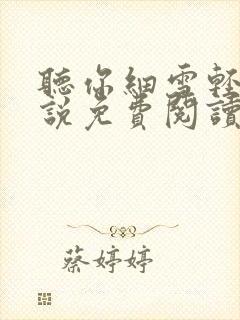 聽你細雪輕
說免費閱讀
蔡婷婷